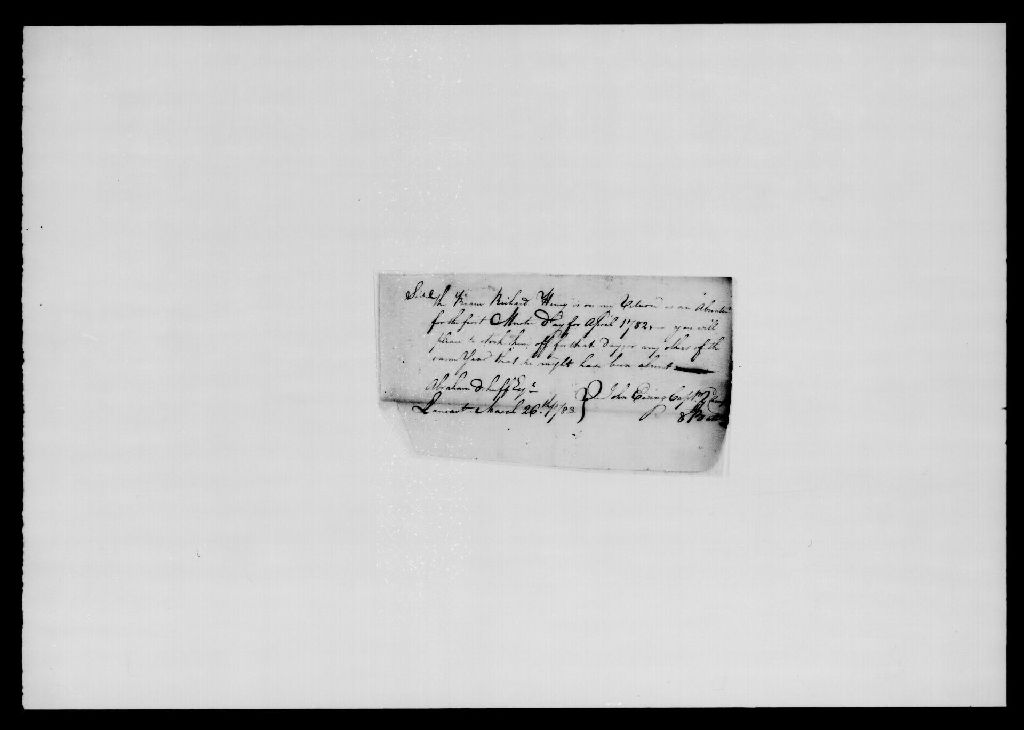 Sir
Richard Henry is on my Return as an Absentee
for the first Muster Day for April 1782, you will
please to strike him off for that Day or any other of the
same Year that he might have been absent
Abraham Dehuff Esqr
John Ewing Capt
March 26th 1783